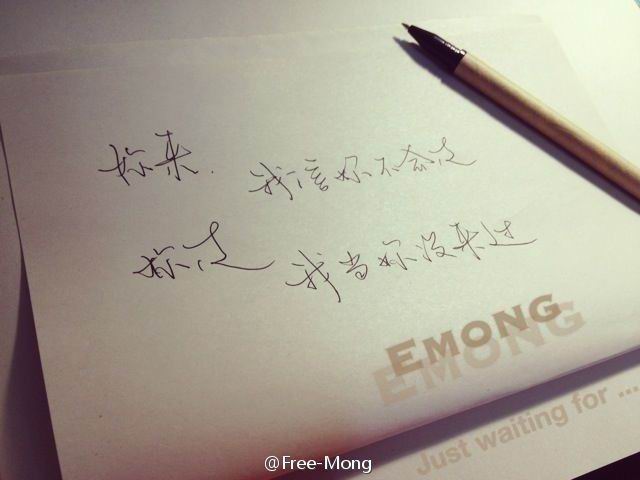 你来. 我信你不会走
你走 我当你没来过
EMONG
EMONG
Just waiting for ...
@Free-Mong